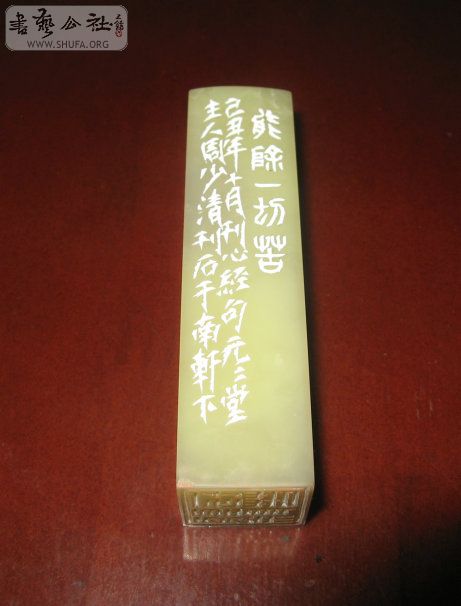 書藝公社
WWW.SHUFA.ORG
能除一切苦
己丑年十月刊心經句元二堂
主人周少清刊石于南軒下